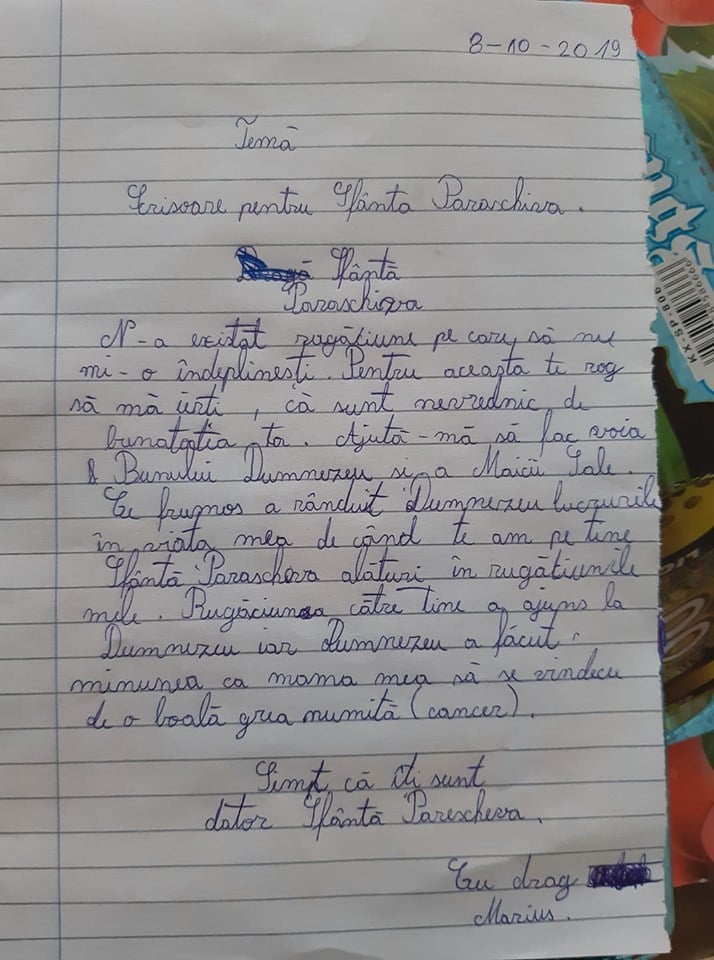 8-10-2019
Temă
Scrisoare pentru Sfânta Paraschiva.
Sfântă
Paraschiva
N-a existat rugăciune pe care să nu
mi-o îndeplinești. Pentru aceasta te rog
să mă ierti, că sunt nevrednic de
bunatatia ta. Ajută-mă să fac voia
Bunului Dumnezeu si a Maicii Sale.
Ce frumos a rânduit Dumnezeu lucrurile
în viata mea de când te am pe tine
Sfântă Parascheva alături în rugătiunile
mele. Rugăciunea către tine a ajuns la
Dumnezeu iar Dumnezeu a făcut
minunea ca mama mea să se vindece
de o boală grea numită (cancer).
Simt, că îti sunt
dator Sfântă Parescheva.
Cu drag
Marius.
KX-SP-806